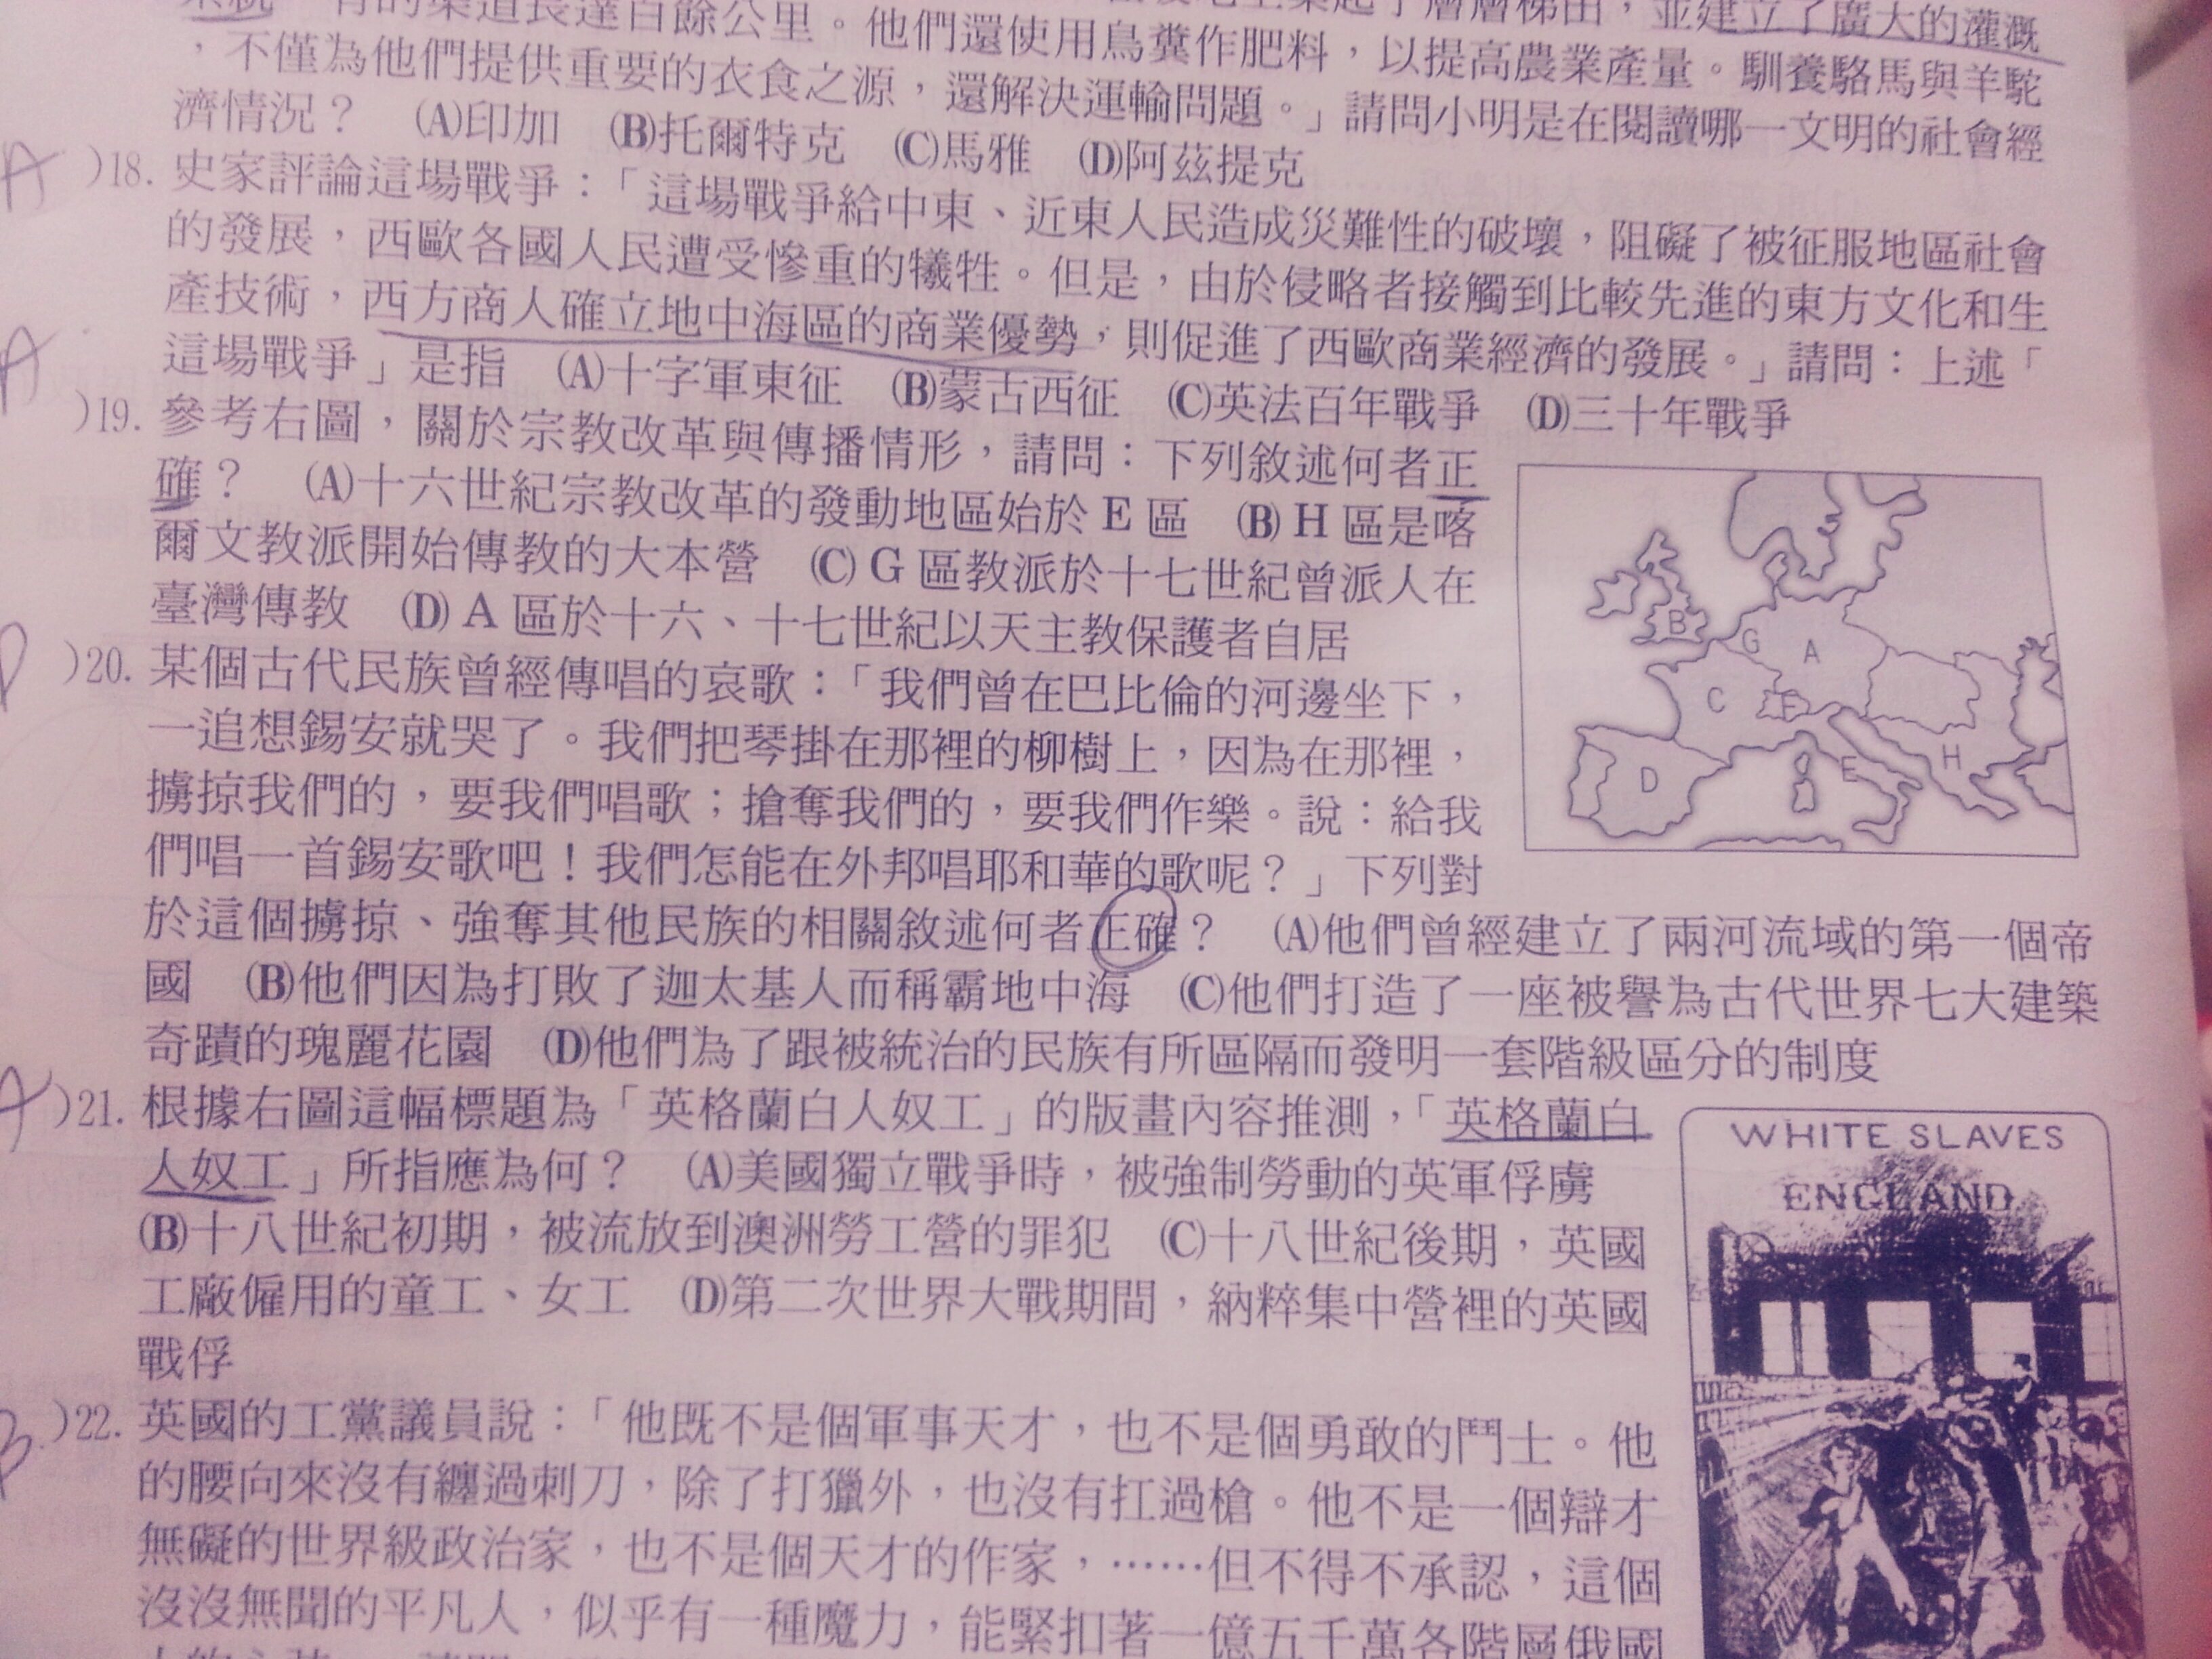 系統 有的渠道長達百餘公里。他們還使用鳥糞作肥料，以提高農業產量。馴養駱馬與羊駝
層層梯田，並建立了廣大的灌溉
，不僅為他們提供重要的衣食之源，還解決運輸問題。」請問小明是在閱讀哪一文明的社會經
濟情況？ (A)印加 (B)托爾特克 (C)馬雅 (D)阿茲提克
A )18. 史家評論這場戰爭：「這場戰爭給中東、近東人民造成災難性的破壞，阻礙了被征服地區社會
的發展，西歐各國人民遭受慘重的犧牲。但是，由於侵略者接觸到比較先進的東方文化和生
產技術，西方商人確立地中海區的商業優勢，則促進了西歐商業經濟的發展。」請問：上述「
這場戰爭」是指 (A)十字軍東征 (B)蒙古西征 (C)英法百年戰爭 (D)三十年戰爭
A )19. 參考右圖，關於宗教改革與傳播情形，請問：下列敘述何者正
確？ (A)十六世紀宗教改革的發動地區始於 E 區 (B) H 區是喀
爾文教派開始傳教的大本營 (C) G 區教派於十七世紀曾派人在
臺灣傳教 (D) A 區於十六、十七世紀以天主教保護者自居
B
G
A
C
F
D
E
H
)20. 某個古代民族曾經傳唱的哀歌：「我們曾在巴比倫的河邊坐下，
一追想錫安就哭了。我們把琴掛在那裡的柳樹上，因為在那裡，
擄掠我們的，要我們唱歌；搶奪我們的，要我們作樂。說：給我
們唱一首錫安歌吧！我們怎能在外邦唱耶和華的歌呢？」下列對
於這個擄掠、強奪其他民族的相關敘述何者正確？ (A)他們曾經建立了兩河流域的第一個帝
國 (B)他們因為打敗了迦太基人而稱霸地中海 (C)他們打造了一座被譽為古代世界七大建築
奇蹟的瑰麗花園 (D)他們為了跟被統治的民族有所區隔而發明一套階級區分的制度
A )21. 根據右圖這幅標題為「英格蘭白人奴工」的版畫內容推測，「英格蘭白
人奴工」所指應為何？ (A)美國獨立戰爭時，被強制勞動的英軍俘虜
(B)十八世紀初期，被流放到澳洲勞工營的罪犯 (C)十八世紀後期，英國
工廠僱用的童工、女工 (D)第二次世界大戰期間，納粹集中營裡的英國
戰俘
WHITE SLAVES
ENGLAND
B )22. 英國的工黨議員說：「他既不是個軍事天才，也不是個勇敢的鬥士。他
的腰向來沒有纏過刺刀，除了打獵外，也沒有扛過槍。他不是一個辯才
無礙的世界級政治家，也不是個天才的作家，……但不得不承認，這個
沒沒無聞的平凡人，似乎有一種魔力，能緊扣著一億五千萬各階層俄國